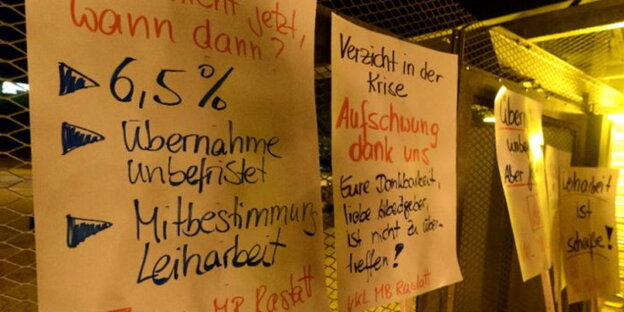 jetzt,
wann dann?
6,5%
Übernahme
unbefristet
Mitbestimmung
Leiharbeit
MB Rastatt
Verzicht in der
Krise
Aufschwung
dank uns
Eure Dankbarkeit,
liebe Arbeitgeber,
ist nicht zu über-
treffen!
VKL MB Rastatt
Über
unbe
Aber
Leiharbeit
ist
scheiße!